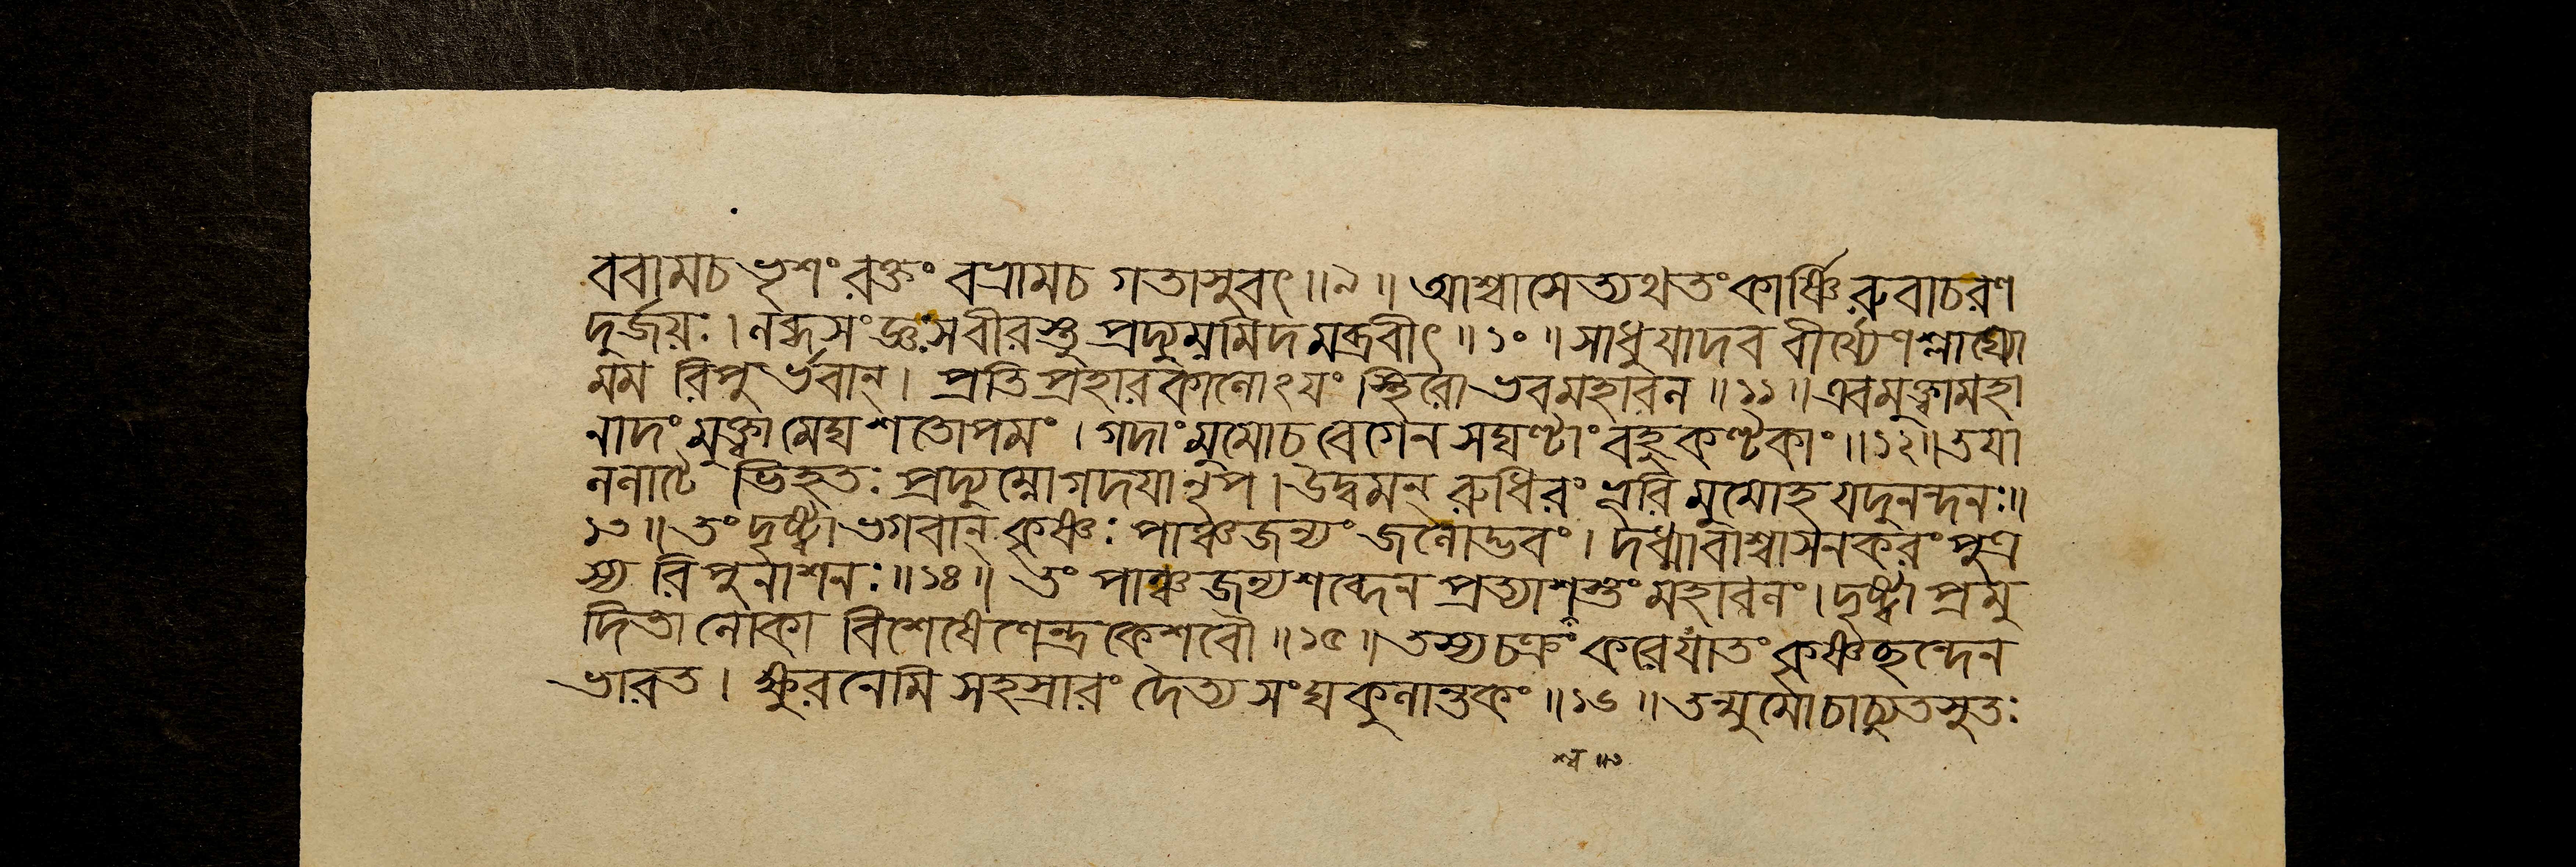 ববামচ ভৃশং রক্তং বভ্রামচ গতাসুবৎ॥৯॥ আশ্বামেত্যথতংকার্ষ্ণিরুবাচরণ
দুর্জয়ঃ।নব্ধসংজ্ঞঃসবীরস্তু প্রদ্যুম্নমিদমব্রবীৎ॥১০॥সাধুযাদব বীর্য্যেণশ্লাঘ্যো
মম রিপুর্ভবান্। প্রতিপ্রহারকানোঽযং স্থিরো ভবমহাবন॥১১॥এবমুক্ত্বামহা
নাদং মুক্ত্বা মেঘশতোপমং।গদাংমুমোচ বেগেন সঘণ্টাং বহুকণ্টকাং॥১২॥তযা
ননাটে ভিহতঃ প্রদ্যুম্নোগদযানৃপ।উদ্বমন্ রুধিরং ভূরি মুমোহ যদুনন্দনঃ॥
১৩॥তং দৃষ্ট্বা ভগবান্ কৃষ্ণঃ পাঞ্চজন্যং জনোদ্ভবং। দধ্মাবাশ্বাসনকরং পুত্র
স্য রিপুনাশনঃ॥১৪॥ তং পাঞ্চজন্যশব্দেন প্রত্যাশ্বস্তং মহাবনং।দৃষ্ট্বা প্রমু
দিতা নোকা বিশেষেণেন্দ্রকেশবৌ॥১৫॥তস্যচক্রং করেযাতং কৃষ্ণছন্দেন
ভারত। ক্ষুরনেমি সহস্রারং দৈত্য সংঘকুনান্তকং॥১৬॥তন্মুমোচাচ্যুতসুতঃ